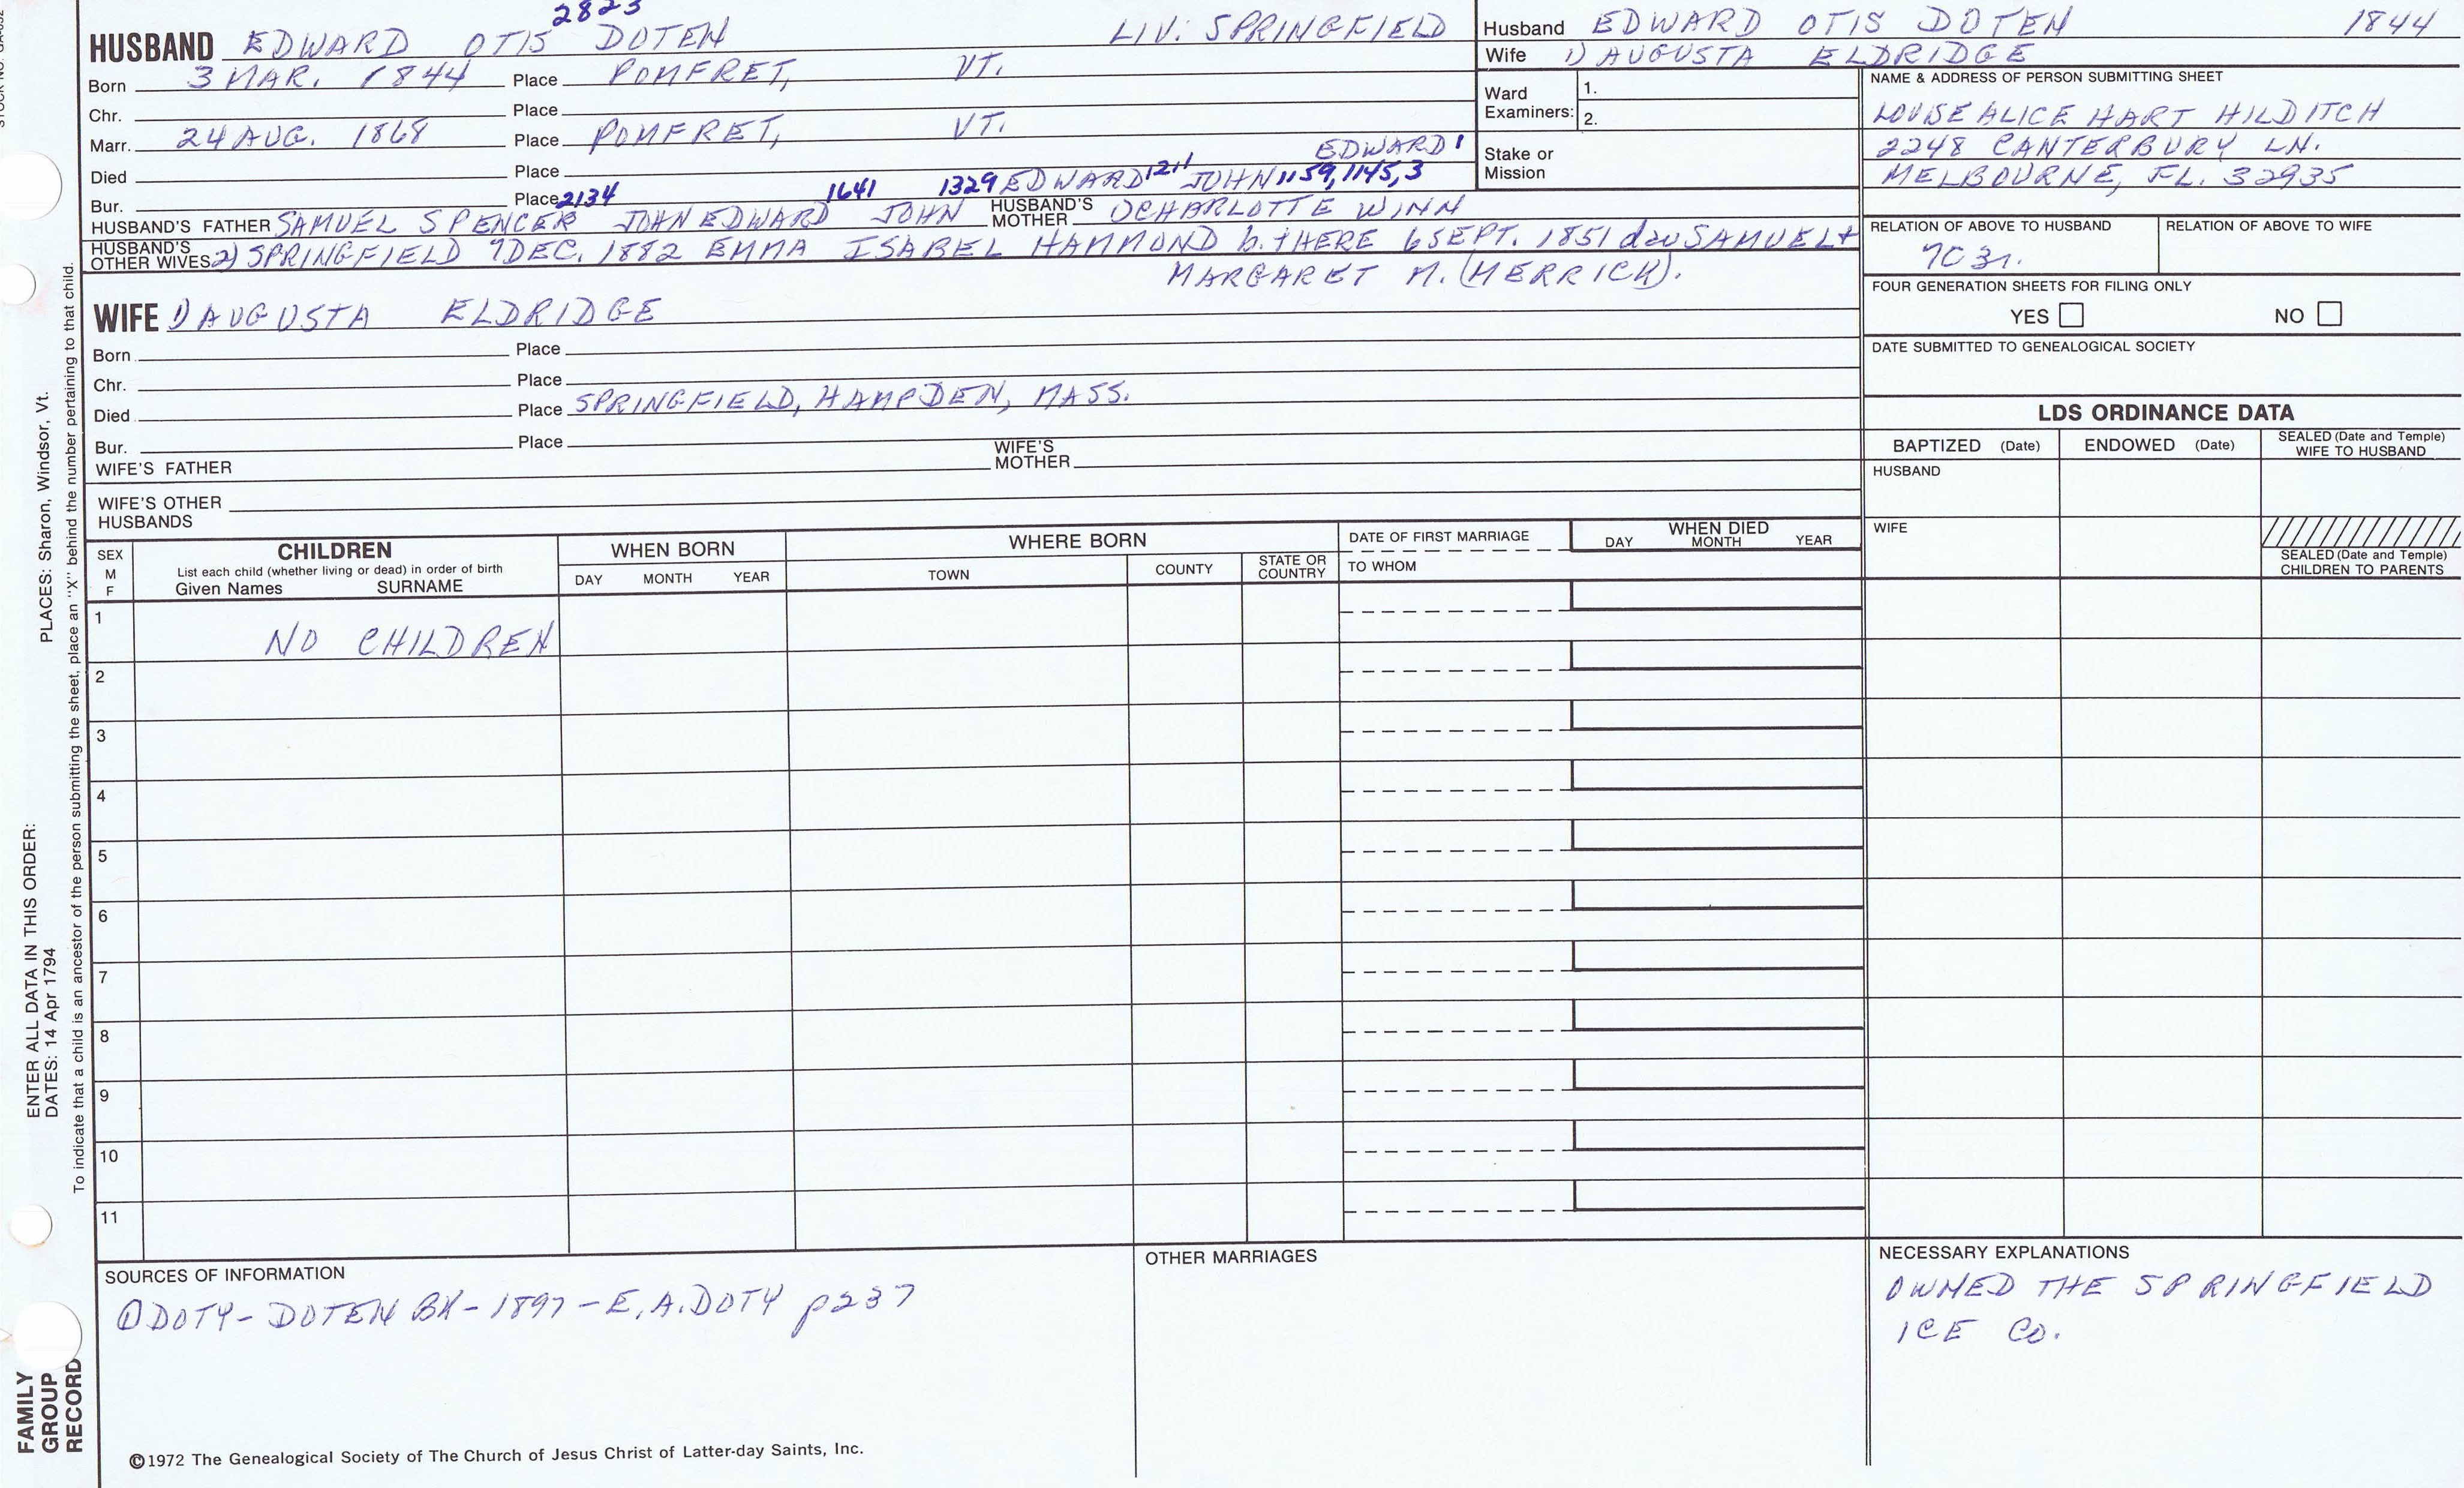 2823
HUSBAND EDWARD OTIS DOTEN LIV: SPRINGFIELD
Born 3 MAR. 1844 Place POMFRET, VT.
Chr. Place
Marr. 24 AUG. 1868 Place POMFRET, VT.
Died Place EDWARD 1
Bur. Place 2134 1641 1329 EDWARD 1211 JOHN 1159, 1145, 3
HUSBAND'S FATHER SAMUEL SPENCER JOHN EDWARD JOHN HUSBAND'S MOTHER 1) CHARLOTTE WINN
HUSBAND'S OTHER WIVES 2) SPRINGFIELD 7 DEC. 1882 EMMA ISABEL HAMMOND b. THERE 6 SEPT. 1851 dau SAMUEL +
MARGARET M. (MERRICK).
WIFE 1) AUGUSTA ELDRIDGE
Born Place
Chr. Place
Died Place SPRINGFIELD, HAMPDEN, MASS.
Bur. Place
WIFE'S FATHER WIFE'S MOTHER
WIFE'S OTHER HUSBANDS
Husband EDWARD OTIS DOTEN 1844
Wife 1) AUGUSTA ELDRIDGE
Ward Examiners: 1.
2.
Stake or Mission
NAME & ADDRESS OF PERSON SUBMITTING SHEET
LOUISE ALICE HART HILDITCH
2248 CANTERBURY LN.
MELBOURNE, FL. 32935
RELATION OF ABOVE TO HUSBAND RELATION OF ABOVE TO WIFE
7C 3r.
FOUR GENERATION SHEETS FOR FILING ONLY
YES NO
DATE SUBMITTED TO GENEALOGICAL SOCIETY
LDS ORDINANCE DATA
BAPTIZED (Date) ENDOWED (Date) SEALED (Date and Temple) WIFE TO HUSBAND
HUSBAND
WIFE
SEALED (Date and Temple) CHILDREN TO PARENTS
SEX M F
CHILDREN
List each child (whether living or dead) in order of birth
Given Names SURNAME
WHEN BORN
DAY MONTH YEAR
WHERE BORN
TOWN COUNTY STATE OR COUNTRY
DATE OF FIRST MARRIAGE
TO WHOM
WHEN DIED
DAY MONTH YEAR
1 NO CHILDREN
2
3
4
5
6
7
8
9
10
11
SOURCES OF INFORMATION
① DOTY-DOTEN BK-1897-E.A. DOTY p237
OTHER MARRIAGES
NECESSARY EXPLANATIONS
OWNED THE SPRINGFIELD
ICE CO.
©1972 The Genealogical Society of The Church of Jesus Christ of Latter-day Saints, Inc.
FAMILY GROUP RECORD
ENTER ALL DATA IN THIS ORDER:
DATES: 14 Apr 1794 PLACES: Sharon, Windsor, Vt.
To indicate that a child is an ancestor of the person submitting the sheet, place an "X" behind the number pertaining to that child.